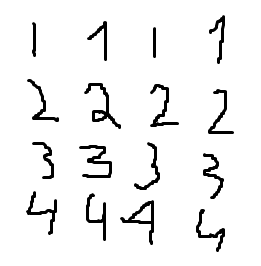 1 1 1 1
2 2 2 2
3 3 3 3
4 4 4 4